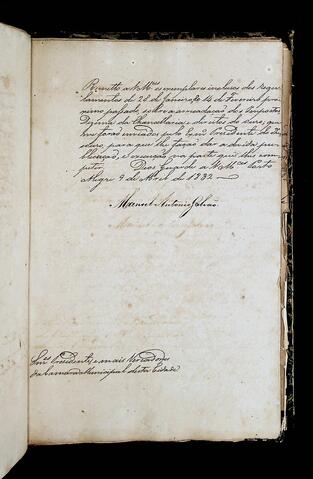 Remetto a V. M.ces os exemplares inclusos dos Regu-
lamentos de 26 de Janeiro, e 14 de Fevereiro pro-
ximo passado, sobre a arrecadação do Imposto,
Dizima da Chancellaria, e direitos de sizas, que
me forão enviados pelo Exmo Presidente do The-
souro, para que lhe fação dar a devida pu-
blicação, e execução na parte que lhe com-
petir. Deos Guarde a V. M.ces Porto
Alegre 9 de Abril de 1832
Manoel Antonio Galvão
Snres Presidente, e mais Vereadores
da Camara Municipal desta Cidade